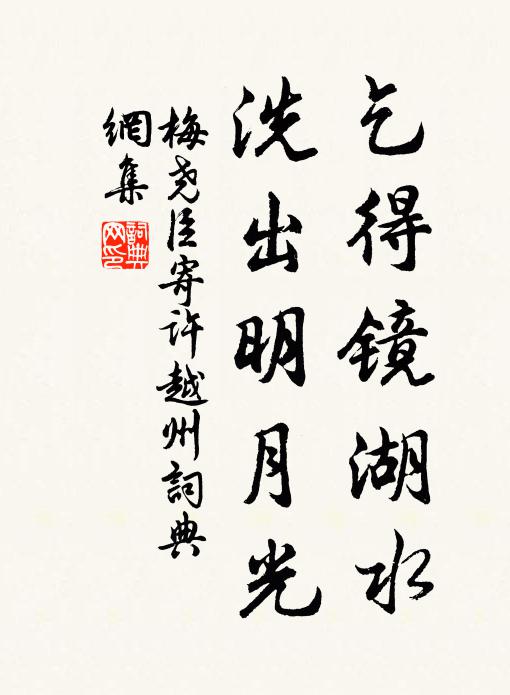 乞得镜湖水
洗出明月光
梅尧臣寄许越州詞典
網集
詞典
网印